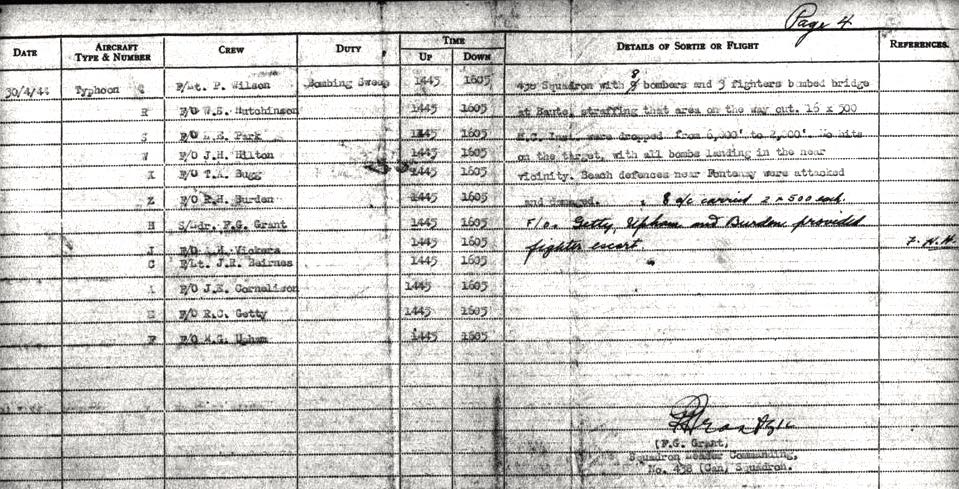 Page 4
DATE AIRCRAFT TYPE & NUMBER CREW DUTY TIME UP DOWN DETAILS OF SORTIE OR FLIGHT REFERENCES.
30/4/44 Typhoon F/Lt. P. Wilson Bombing Sweep 1445 1605 438 Squadron with 8 bombers and 3 fighters bombed bridge
R F/O W.S. Hutchinson 1445 1605 at straffing that area on the way out. 16 x 500
S F/O Park 1445 1605 were dropped from 6,000' to 2,000'. No hits
W F/O J.H. Hilton 1445 1605 on the target, with all bombs landing in the near
X F/O T.A. Bugg 1445 1605 vicinity. Beach defences near Fontenay were attacked
Z F/O R.H. Burden 1445 1605 and damaged. 8 a/c carried 2 x 500 each.
H S/Ldr. F.G. Grant 1445 1605 F/O. Getty, Upham and Burden provided
J F/O Vickers 1445 1605 fighter escort 7. N.N.
C F/Lt. J.R. Beirnes 1445 1605
F/O J.E. Cornelison 1445 1605
E F/O R.C. Getty 1445 1605
F F/O Upham 1445 1605
(F.G. Grant,
Squadron Leader Commanding,
No. 438 (Can) Squadron.